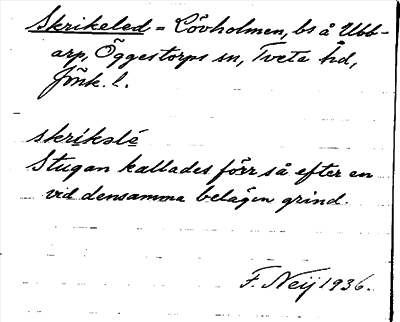 Skrikeled = Lövholmen, bs å Ubb-
arp, Öggestorps sn, Tveta hd,
Jönk. l.
skrikəlé
Stugan kallades förr så efter en
vid densamma belägen grind.
F. Neij 1936.